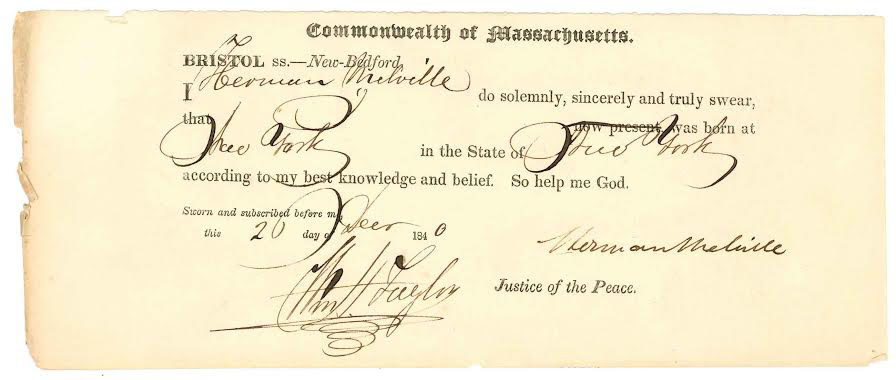 Commonwealth of Massachusetts.
BRISTOL ss.—New-Bedford,
I Herman Melville do solemnly, sincerely and truly swear,
that now present, was born at
New York in the State of New York
according to my best knowledge and belief. So help me God.
Sworn and subscribed before me
this 20 day of Decr 1840
Herman Melville
Wm H Taylor Justice of the Peace.